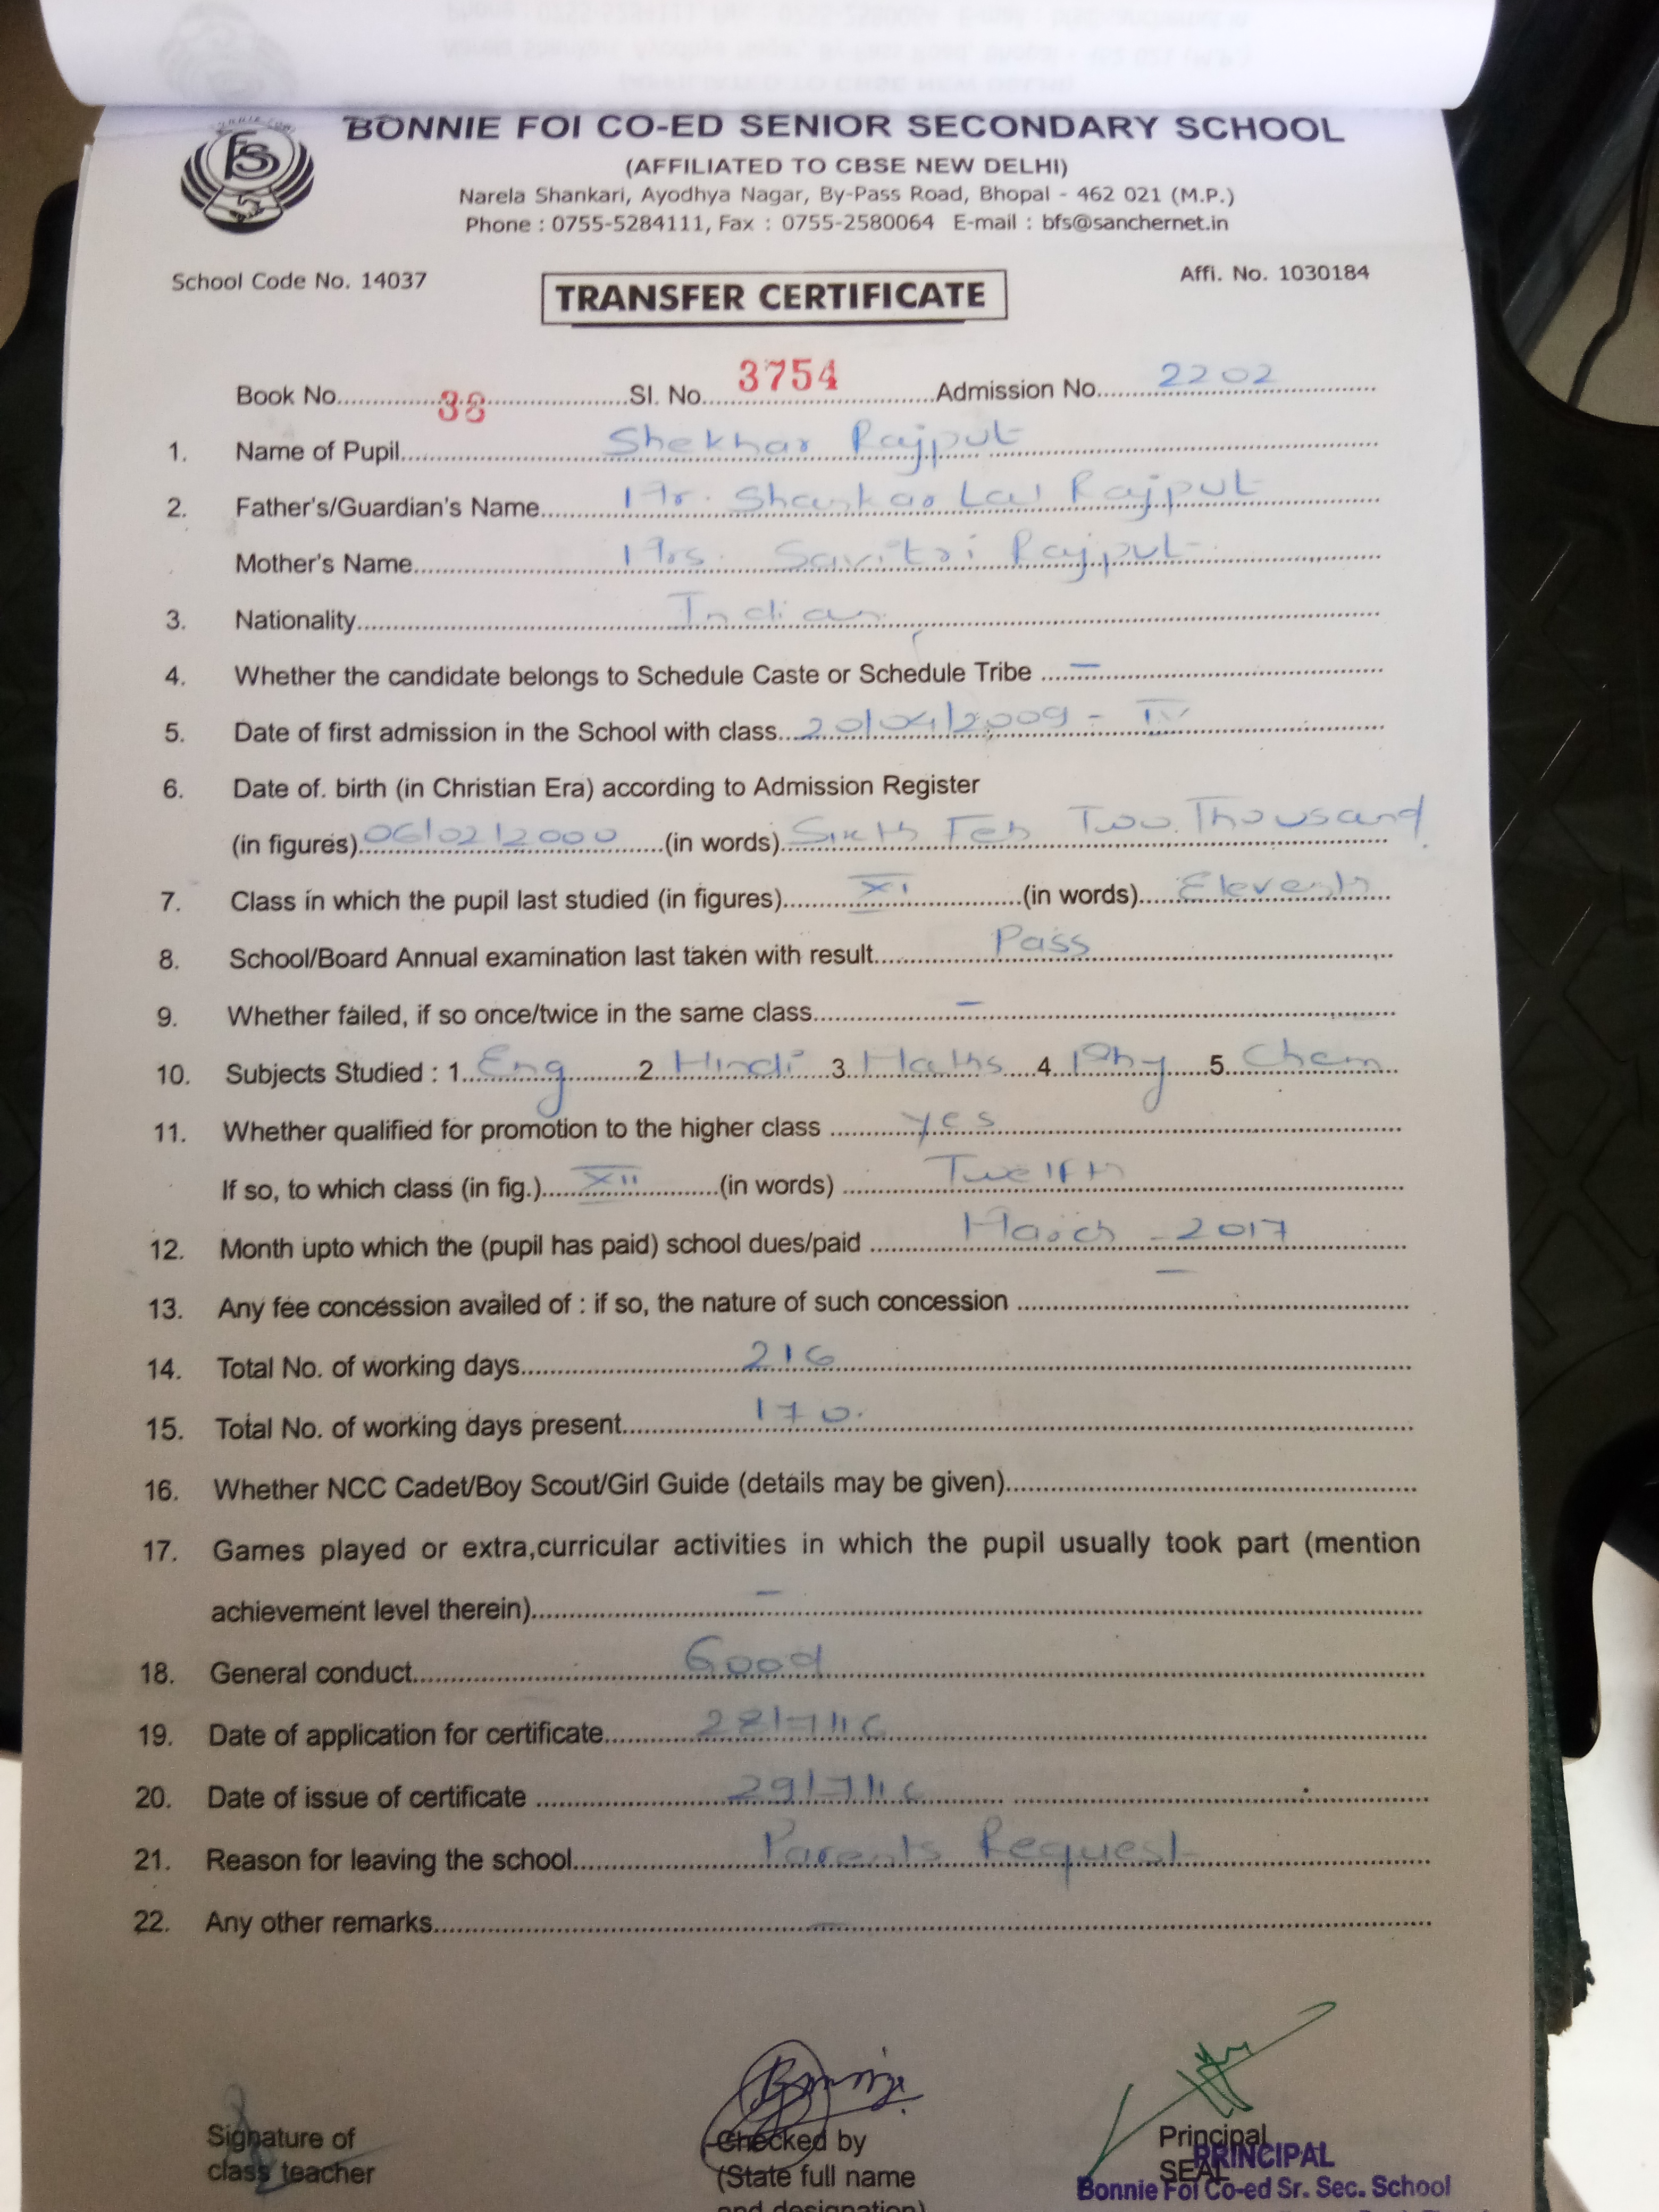 BONNIE FOI CO-ED SENIOR SECONDARY SCHOOL
(AFFILIATED TO CBSE NEW DELHI)
Narela Shankari, Ayodhya Nagar, By-Pass Road, Bhopal - 462 021 (M.P.)
Phone : 0755-5284111, Fax : 0755-2580064 E-mail : bfs@sanchernet.in
School Code No. 14037
Affi. No. 1030184
TRANSFER CERTIFICATE
Book No. 38 Sl. No. 3754 Admission No. 2202
1. Name of Pupil Shekhar Rajput
2. Father's/Guardian's Name Mr. Shankar Lal Rajput
Mother's Name Mrs. Savitri Rajput
3. Nationality Indian
4. Whether the candidate belongs to Schedule Caste or Schedule Tribe —
5. Date of first admission in the School with class 20/04/2009 - IV
6. Date of. birth (in Christian Era) according to Admission Register
(in figures) 06/02/2000 (in words) Sixth Feb Two Thousand
7. Class in which the pupil last studied (in figures) XI (in words) Eleventh
8. School/Board Annual examination last taken with result Pass
9. Whether failed, if so once/twice in the same class —
10. Subjects Studied : 1. Eng 2. Hindi 3. Maths 4. Phy 5. Chem
11. Whether qualified for promotion to the higher class yes
If so, to which class (in fig.) XII (in words) Twelfth
12. Month upto which the (pupil has paid) school dues/paid March - 2017
13. Any fee concession availed of : if so, the nature of such concession —
14. Total No. of working days 216
15. Total No. of working days present 170.
16. Whether NCC Cadet/Boy Scout/Girl Guide (details may be given)
17. Games played or extra,curricular activities in which the pupil usually took part (mention
achievement level therein) —
18. General conduct Good
19. Date of application for certificate 28/7/16
20. Date of issue of certificate 29/7/16
21. Reason for leaving the school Parents Request
22. Any other remarks —
Signature of
class teacher
Checked by
(State full name
and designation)
Principal
SEAL
PRINCIPAL
Bonnie Foi Co-ed Sr. Sec. School